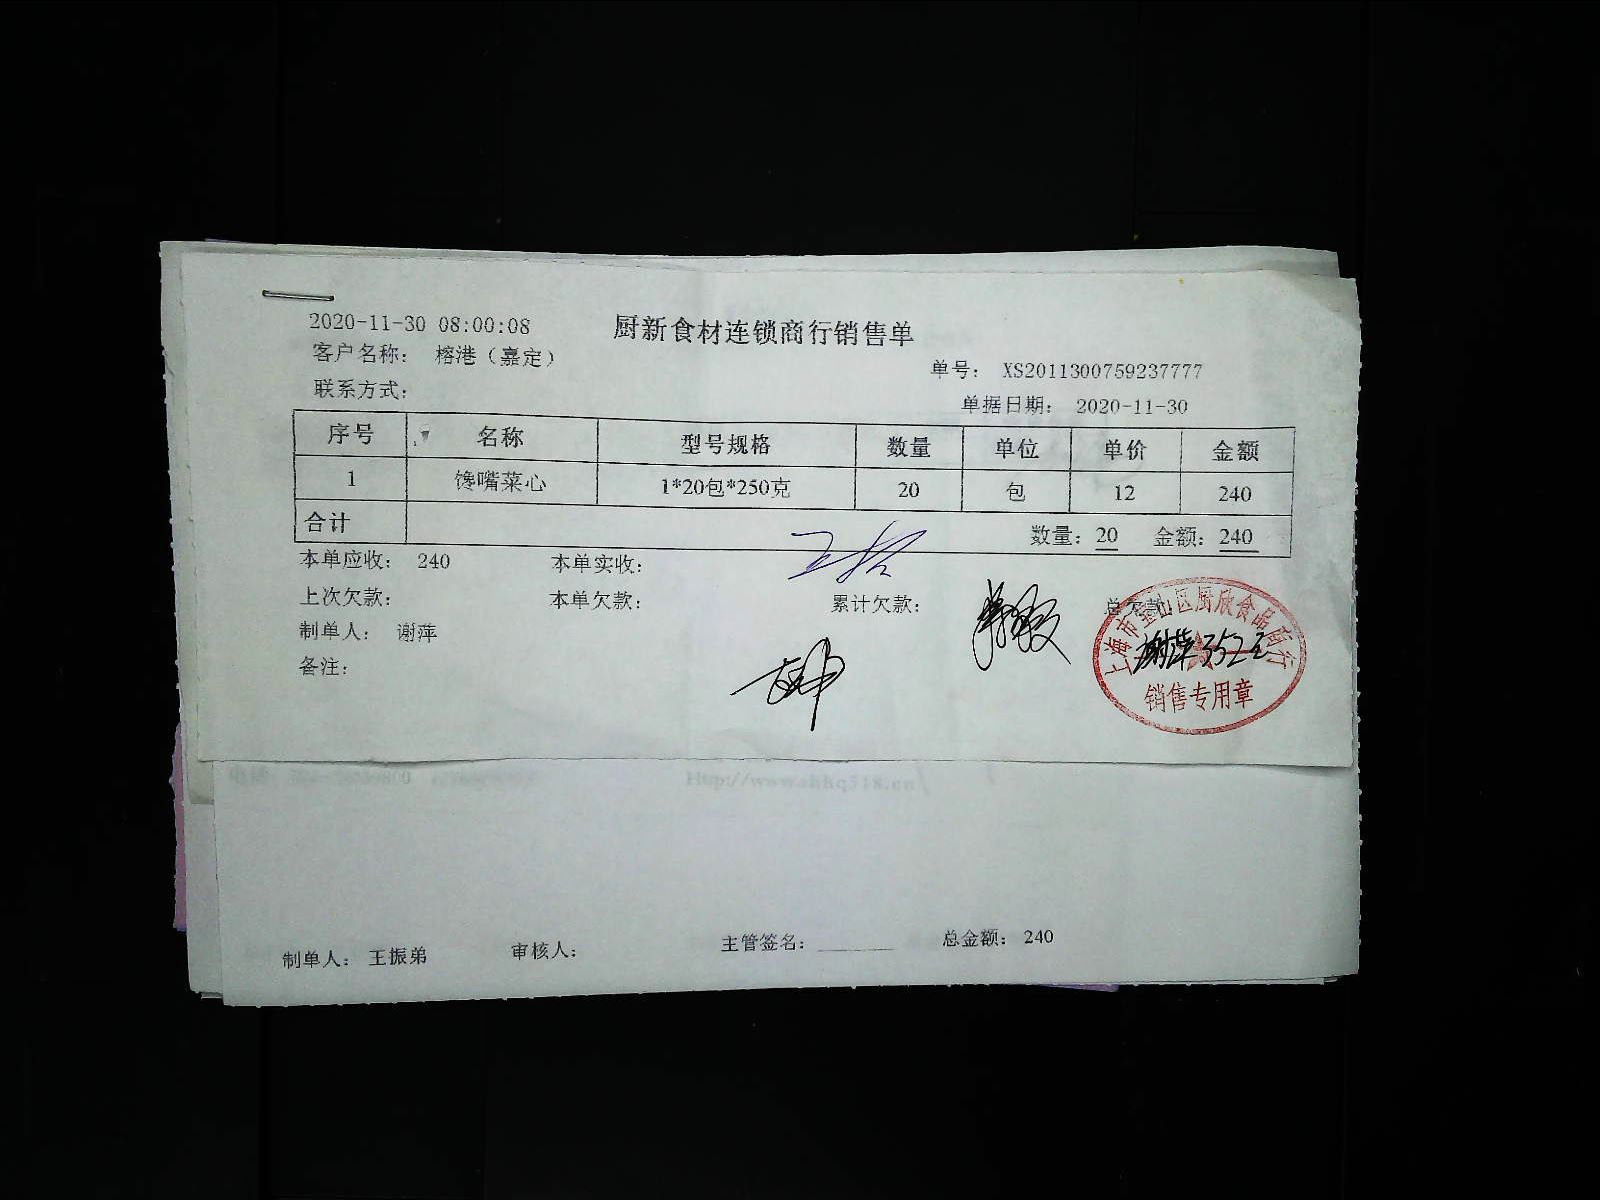 2020-11-30 08:00:08
厨新食材连锁商行销售单
客户名称： 榕港（嘉定）
单号： XS2011300759237777
联系方式：
单据日期： 2020-11-30
序号 名称 型号规格 数量 单位 单价 金额
1 馋嘴菜心 1*20包*250克 20 包 12 240
合计 数量：20 金额：240
本单应收： 240 本单实收：
上次欠款： 本单欠款： 累计欠款：
制单人： 谢萍
备注：
上海市宝山区厨欣食品商行
谢萍352元
销售专用章
制单人： 王振弟 审核人： 主管签名：________ 总金额： 240